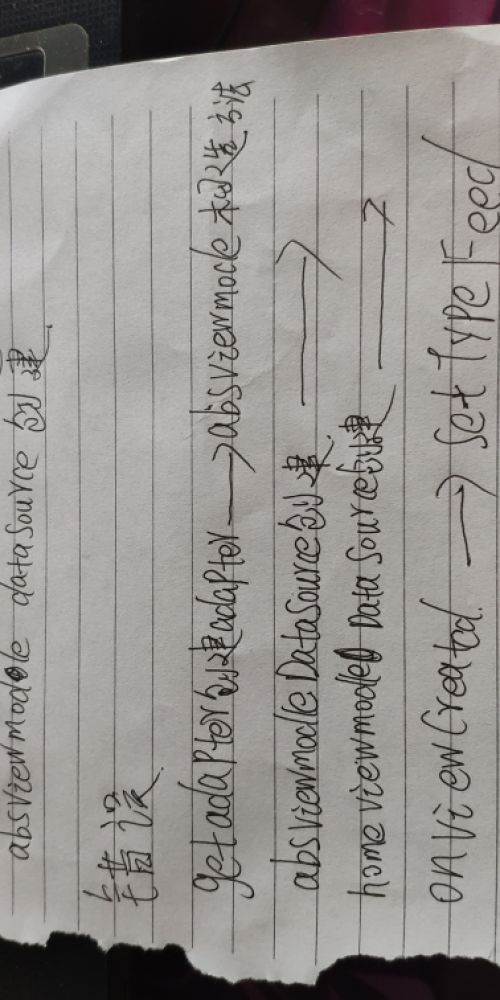 absviewmodole dataSource 创建.
错误
getadapter创建adapter → absviewmodle 构造方法
absviewmodleDataSource创建. →
home viewmodel DataSource创建 →
onViewCreated. → Set Type Feed